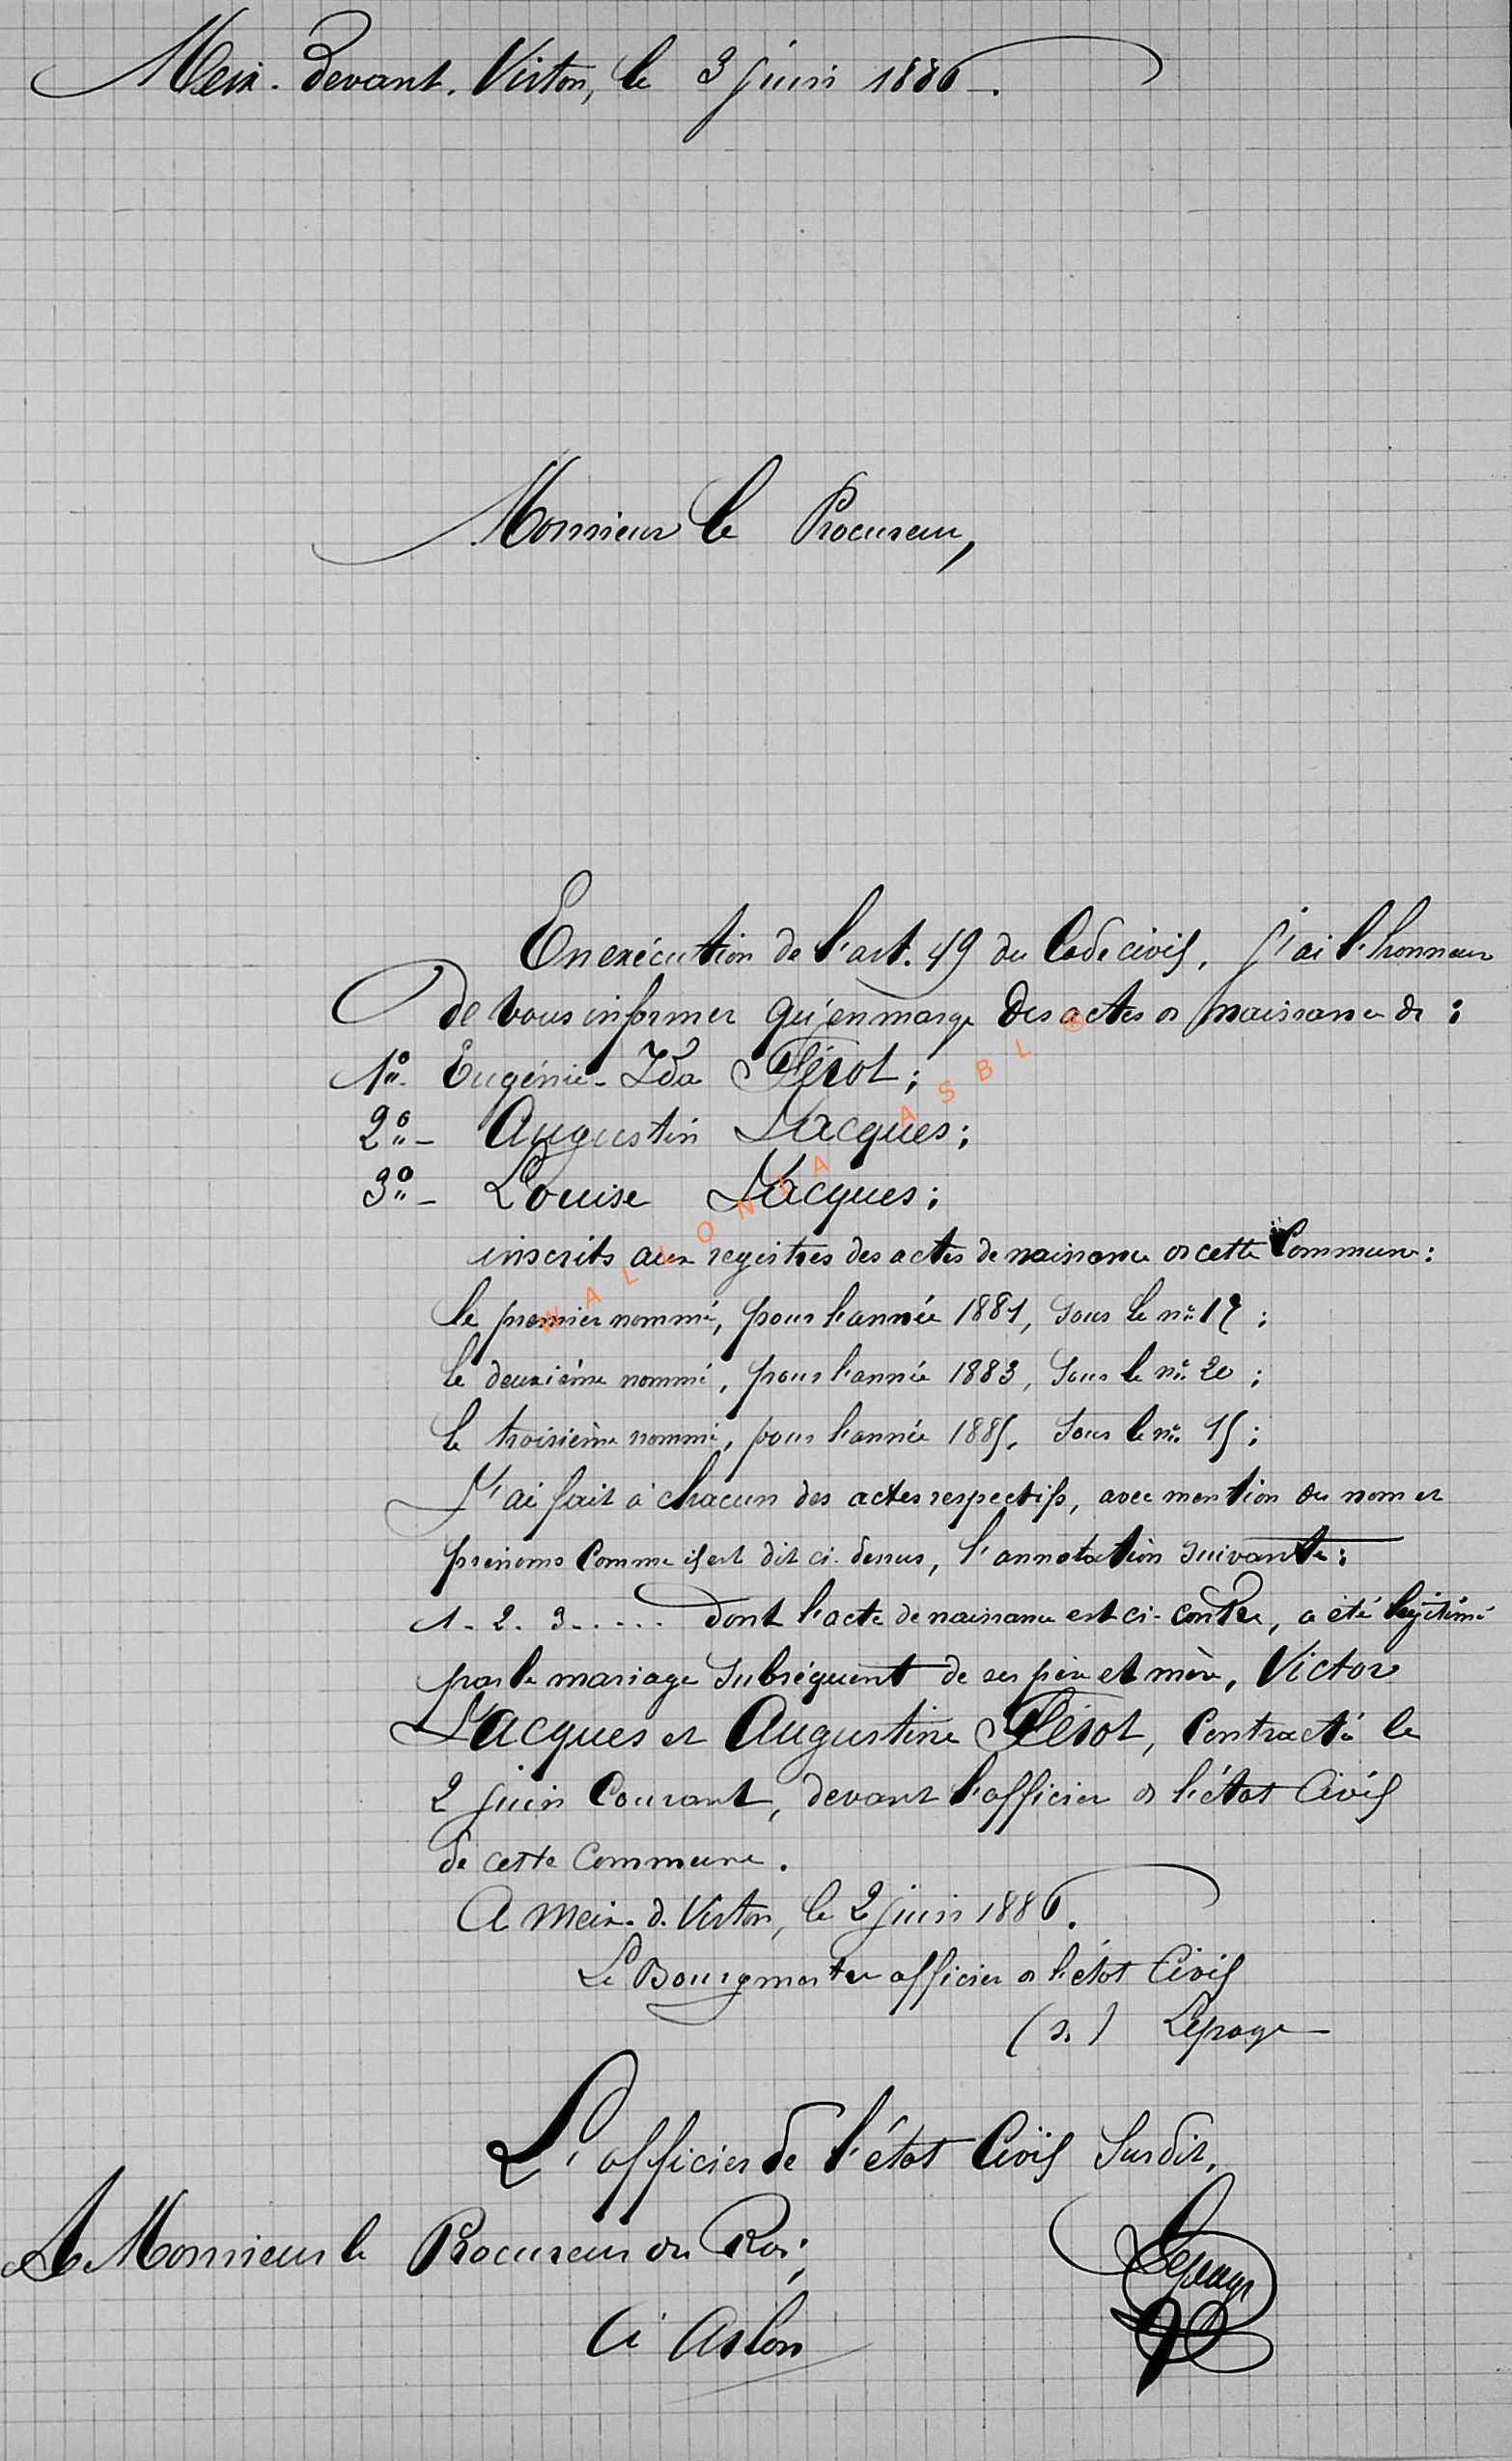 Meix-devant-Virton, le 3 juin 1886.
Monsieur le Procureur,
En exécution de l'art. 49 du Code civil, j'ai l'honneur
de vous informer qu'en marge des actes de naissance de :
1°. Eugénie-Ida Pérot ;
2°- Augustin Jacques ;
3°- Louise Jacques ;
inscrits aux registres des actes de naissance de cette Commune :
le premier nommé, pour l'année 1881, sous le n° 12 ;
le deuxième nommé, pour l'année 1883, sous le n° 20 ;
le troisième nommé, pour l'année 1885, sous le n° 15 ;
J'ai fait à chacun des actes respectifs, avec mention du nom et
prénoms comme il est dit ci-dessus, l'annotation suivante :
1. 2. 3..... dont l'acte de naissance est ci-contre, a été légitimé
par le mariage subséquent de ses père et mère, Victor
Jacques et Augustine Pérot, contracté le
2 juin courant, devant l'officier de l'état Civil
de cette Commune.
A Meix-d.-Virton, le 2 juin 1886.
Le Bourgmestre officier de l'état Civil
(s.) Lepage
L'officier de l'état Civil Susdit,
Lepage
A Monsieur le Procureur du Roi,
à Arlon
WALLONIA ASBL ®